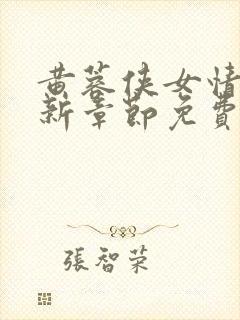 黄蓉侠女情
新章節免費
張智荣